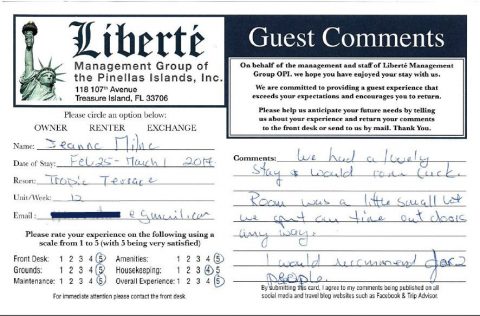 Liberté
Management Group of
the Pinellas Islands, Inc.
118 107th Avenue
Treasure Island, FL 33706
Please circle an option below:
OWNER RENTER EXCHANGE
Name: Jeanne Milne
Date of Stay: Feb 25 - March 1 2017
Resort: Tropic Terrace
Unit/Week: 12
Email: @gmail.com
Please rate your experience on the following using a
scale from 1 to 5 (with 5 being very satisfied)
Front Desk: 1 2 3 4 5 Amenities: 1 2 3 4 5
Grounds: 1 2 3 4 5 Housekeeping: 1 2 3 4 5
Maintenance: 1 2 3 4 5 Overall Experience: 1 2 3 4 5
For immediate attention please contact the front desk.
Guest Comments
On behalf of the management and staff of Liberté Management
Group OPI, we hope you have enjoyed your stay with us.
We are committed to providing a guest experience that
exceeds your expectations and encourages you to return.
Please help us anticipate your future needs by telling
us about your experience and return your comments
to the front desk or send to us by mail. Thank You.
Comments: We had a lovely
Stay & would come back.
Room was a little small but
we spent our time out doors
any way.
I would recommend for 2
people.
By submitting this card, I agree to my comments being published on all
social media and travel blog websites such as Facebook & Trip Advisor.